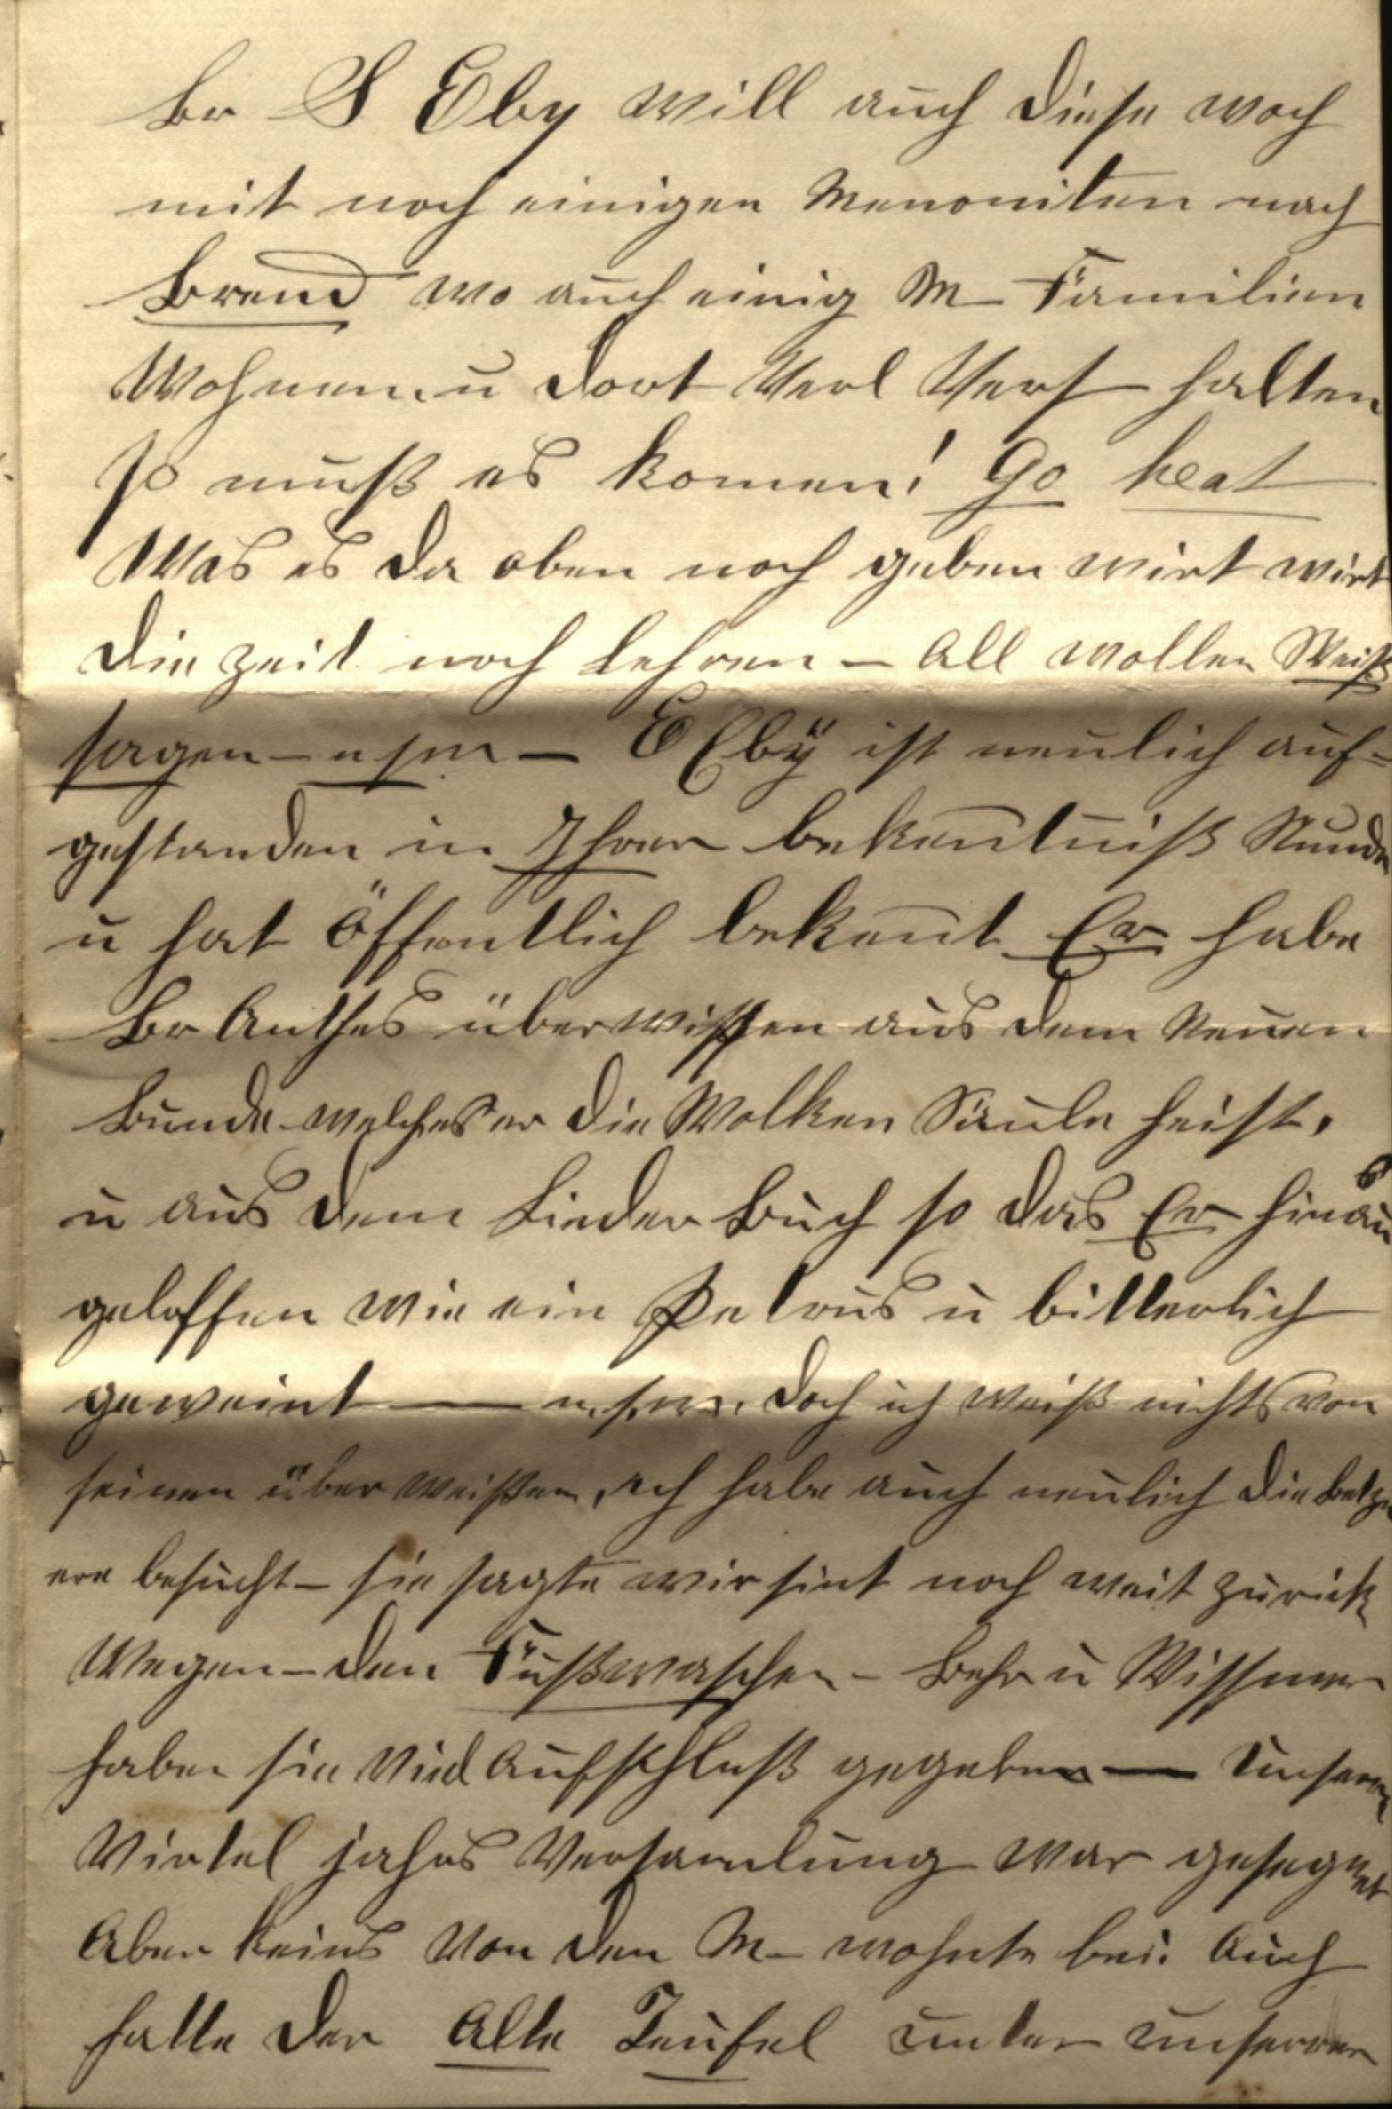 Br S Eby will auch diese woch
mit noch einigen Menoniten nach
Brend wo auch einig M– Familien
Wohnen u dort Verl Vers halten
so muß es komen! Go heat
Was es da oben noch geben wirt wirt
die zeit noch Lehren – All wollen Weiß
sagen – usw – E Eby ist neulich auf=
gestanden in Ihrer bekentniß Stunde
u hat öffentlich bekent Er habe
Br Anthes überwissen aus dem Neuen
Bunde welches er die Wolken Säule heist,
u aus dem Lieder Buch so das Er hinaus
geloffen wie ein Petrus u bitterlich
geweint — u.s.w. doch ich weiß nichts von
seinen überweißen, ich habe auch neulich die
besucht – sie sagte wir sint noch weit zurick
Wegen – den Fußwaschen – Behr u Wissmer
haben sie Viel Aufschluß gegeben — Unsere
Virtel jahrs Versamlung war gesegnet
Aber keins Von den M– wohnte bei. Auch
hatte der Alte Teufel unter unserer